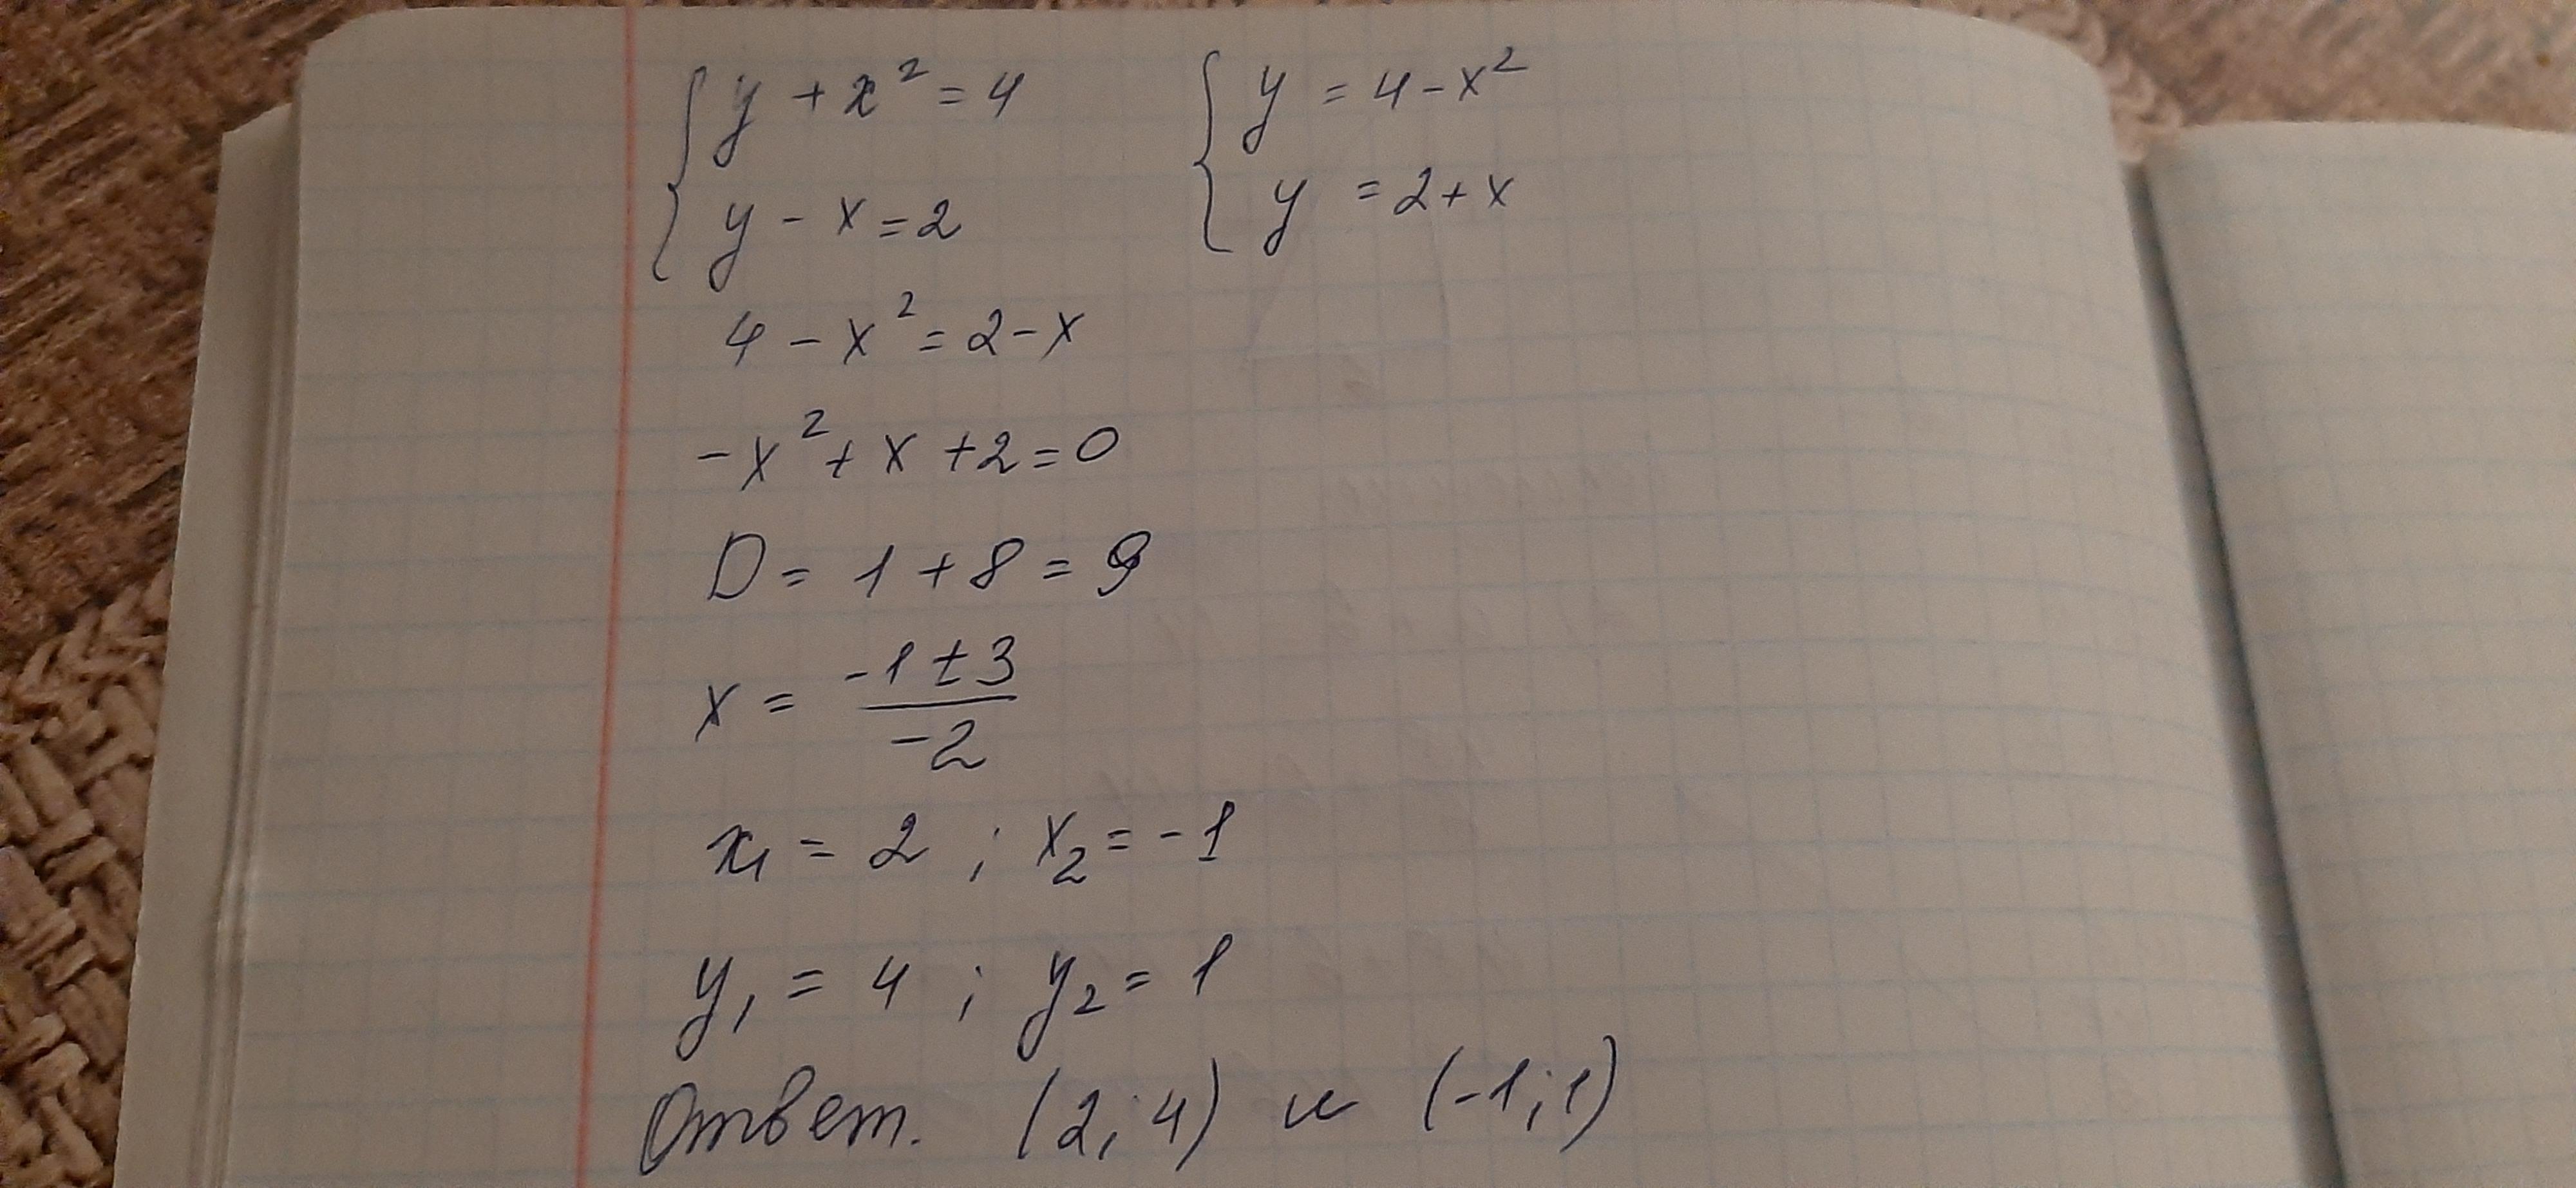 { y + x² = 4   { y = 4 - x²
{ y - x = 2   { y = 2 + x
4 - x² = 2 - x
-x² + x + 2 = 0
D = 1 + 8 = 9
x = (-1 ± 3) / -2
x₁ = 2 ; x₂ = -1
y₁ = 4 ; y₂ = 1
Ответ. (2; 4) и (-1; 1)